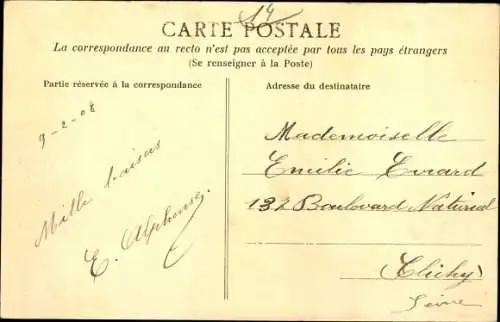 14
CARTE POSTALE
La correspondance au recto n'est pas acceptée par tous les pays étrangers
(Se renseigner à la Poste)
Partie réservée à la correspondance
Adresse du destinataire
9-2-08
Mille baisers
E. Alphonse.
Mademoiselle
Emilie Evrard
132 Boulevard National
Clichy
Seine